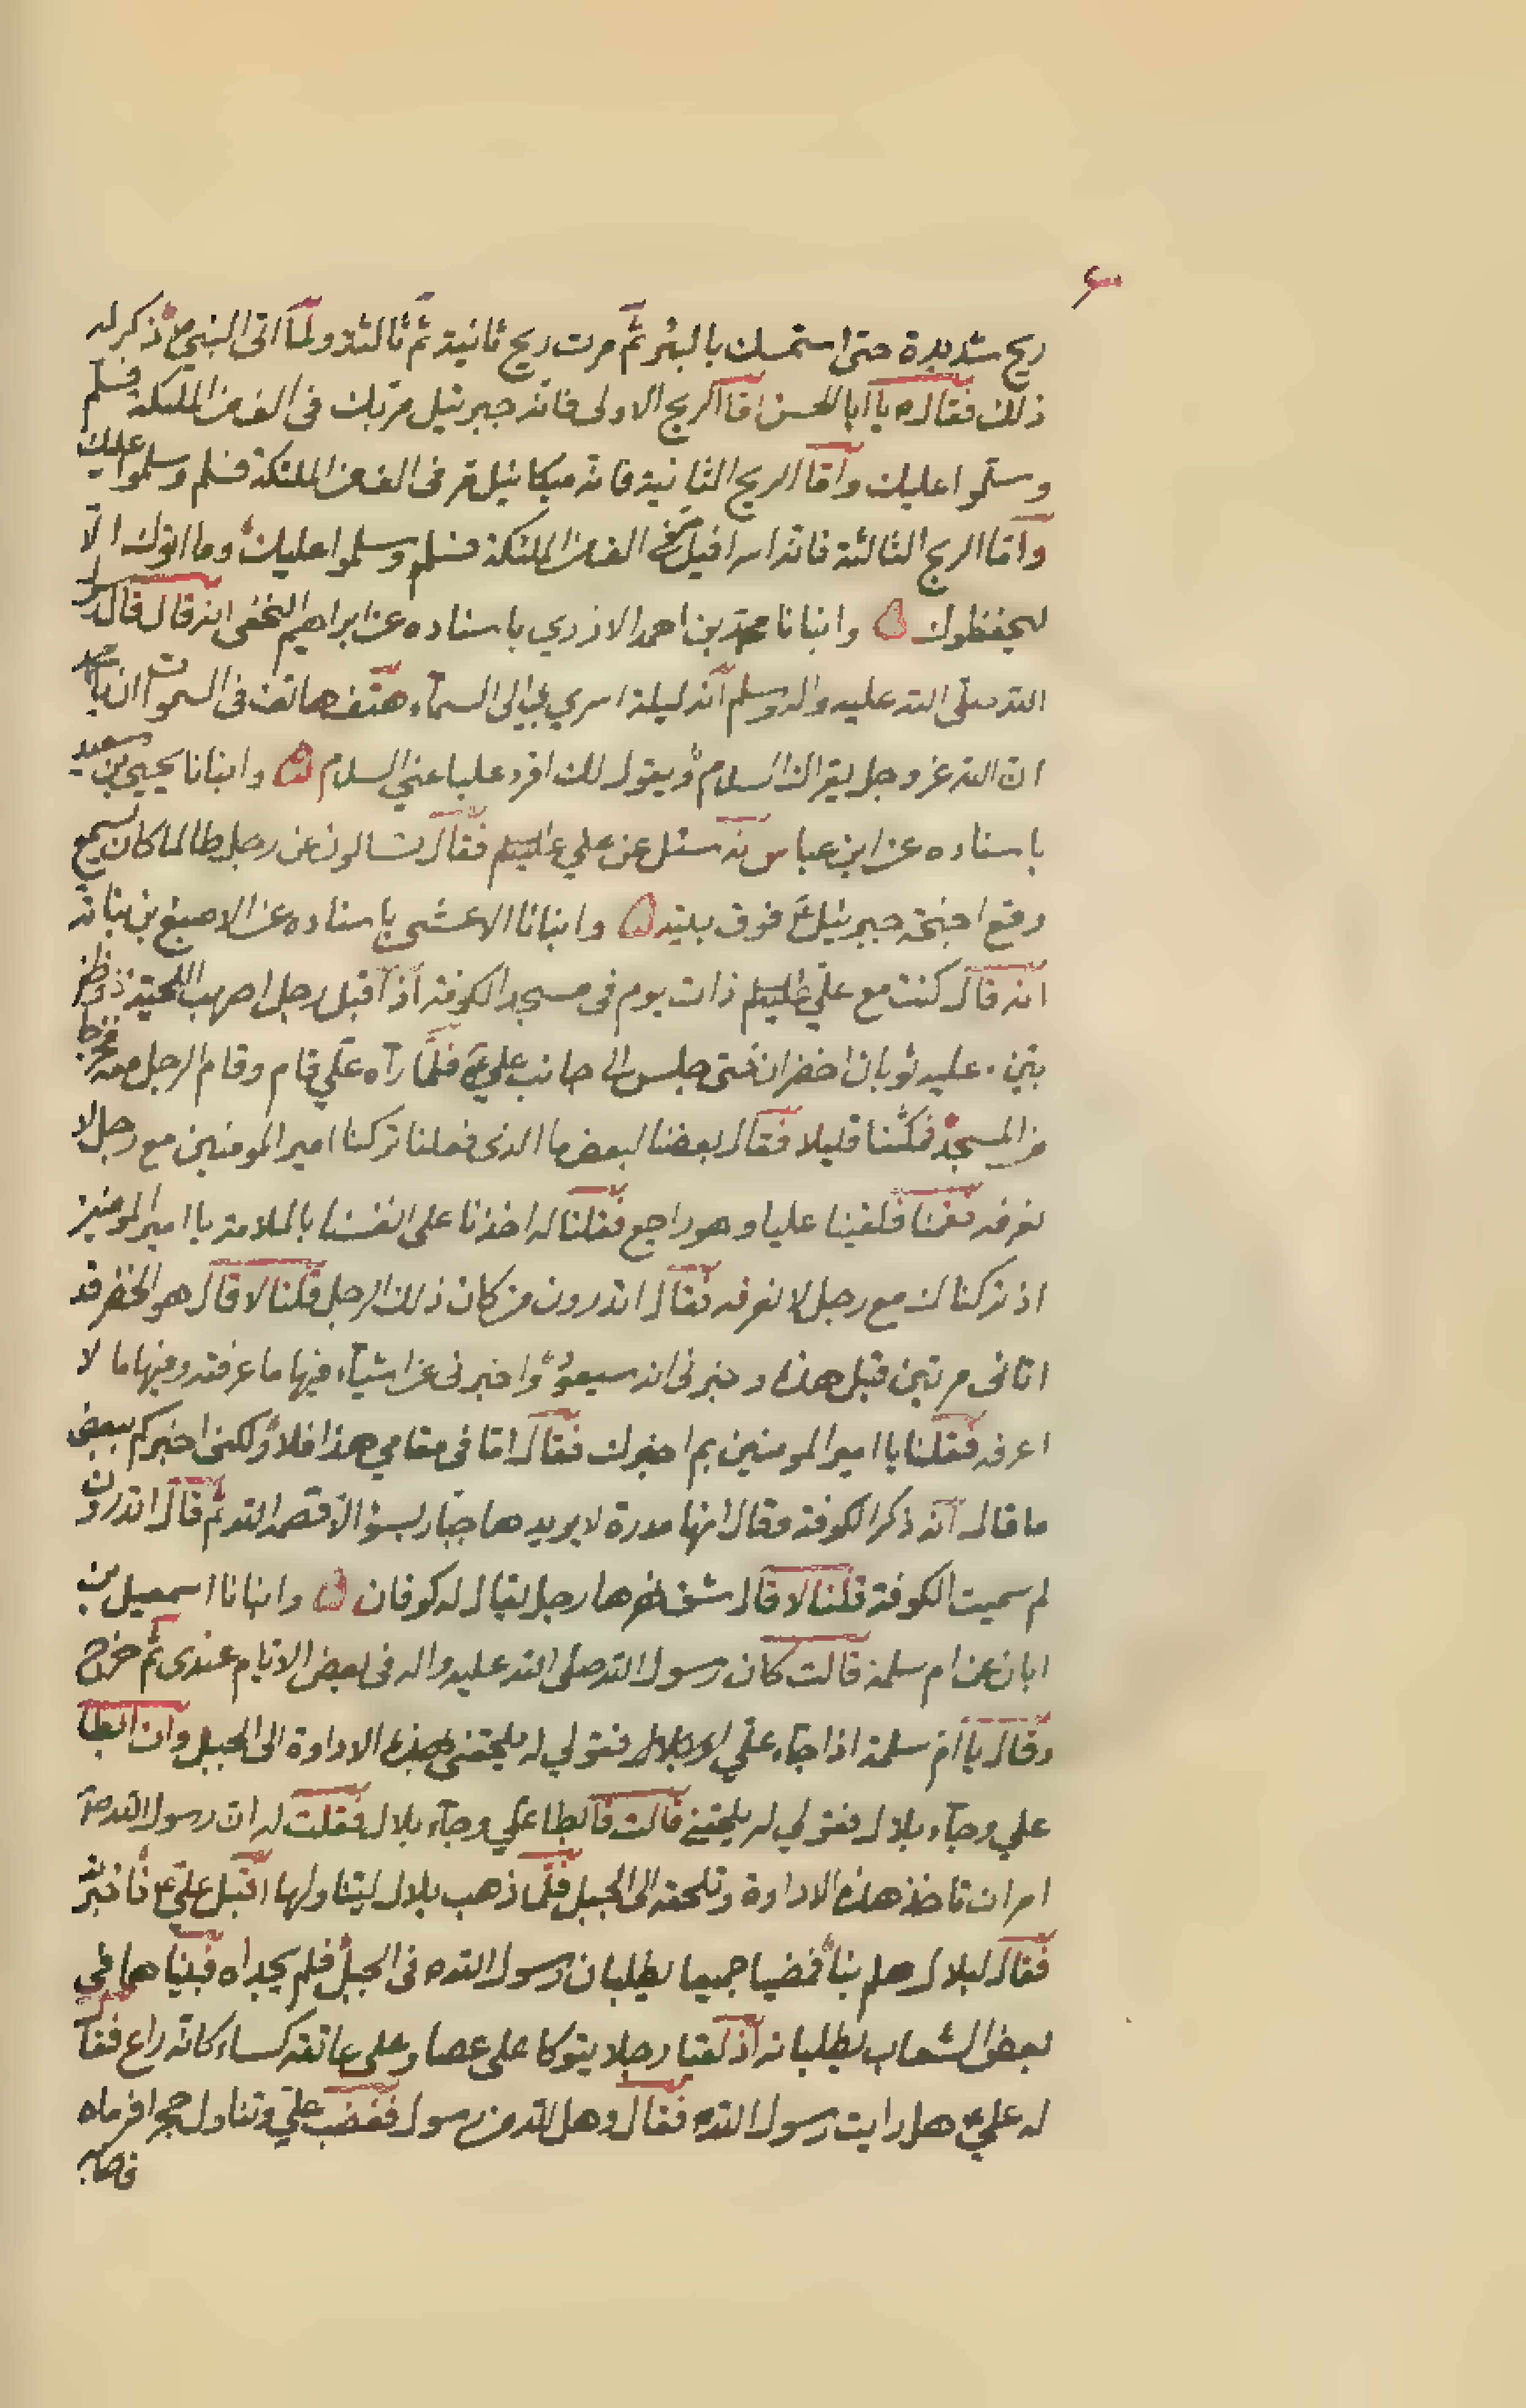 ريح شديدة حتى استمسك بالبئر ثم مرت ريح ثانية ثم ثالثة ولما اتى النبي ص ذكر له
ذلك فقال ص يا ابا الحسن اما الريح الاولى فانه جبرئيل مر بك فى الف من الملئكة فسلم
وسلموا عليك واما الريح الثانية فانه ميكائيل مر فى الف من الملئكة فسلم وسلموا عليك
واما الريح الثالثة فانه اسرافيل فى الف من الملئكة فسلم وسلموا عليك وما اتوك الا
ليحفظوك وانبانا محمد بن احمد الازدي باسناده عن ابراهيم النخعى انه قال قال رسول
الله صلى الله عليه واله وسلم انه ليلة اسري بي الى السماء هتف هاتف فى السموات ان يا محمد
ان الله عز وجل يقرالك السلام ويقول لك اقرء عليا عني السلام وانبانا يحيى بن سعيد
باسناده عن ابن عباس انه سئل عن علي عليه السلم فقال تسالون عن رجل طالما كان يسمع
وقع اجنحة جبرئيل ع فوق بيته وانبانا الاعمش باسناده عن الاصبغ بن نباتة
انه قال كنت مع علي عليه السلم ذات يوم فى مسجد الكوفة اذ اقبل رجل اصهب اللحية ذو ظفر
بتين عليه ثوبان اخضران حتى جلس الى جانب علي ع فلما رآه علي قام وقام الرجل معه فخرجا
من المسجد فمكثنا قليلا فقال بعضنا لبعض ما الذى فعلنا تركنا امير المومنين مع رجل لا
نعرفه فقمنا فلقينا عليا وهو راجع فقلنا له اخذنا على انفسنا بالملامة يا امير المومنين
اذ تركناك مع رجل لا نعرفه فقال اتدرون من كان ذلك الرجل فقلنا لا قال هو الخضر قد
اتانى مرتين قبل هذه وخبرنى انه سيعود واخبرنى عن اشياء فيها ما عرفته وفيها ما لا
اعرفه فقلنا يا امير المومنين بم اخبرك فقال اما فى مقامي هذا فلا ولكنى اخبركم ببعض
ما قال انه ذكر الكوفة وقال انها مدرة لا يريدها جبار بسوء الا قصمه الله ثم قال اتدرون
لم سميت الكوفة قلنا لا قال شق نهرها رجل يقال له كوفان وانبانا اسمعيل بن
ابان عن ام سلمة قالت كان رسول الله صلى الله عليه واله فى بعض الايام عندى ثم خرج
وقال يا ام سلمة اذا جاء علي او بلال فقولي له يلحقنى بهذه الاداوة الى الجبل وان ابطا
علي وجاء بلال فقولي له يلحقنى قالت فابطا علي وجاء بلال فقلت له ان رسول الله ص
امر ان تاخذ هذه الاداوة وتلحقه الى الجبل فلما ذهب بلال ليتناولها اقبل علي ع فاخبرته
فقال لبلال هلم بنا فمضيا جميعا يطلبان رسول الله ص فى الجبل فلم يجداه فبينا هما في
بعض الشعاب يطلبانه اذ لقيا رجلا يتوكا على عصا وعلى عاتقه كساء كانه راع فقال
له علي ع هل رايت رسول الله ص فقال وهل لله من رسول فغضب علي وتناول حجرا فرماه
فاصاب